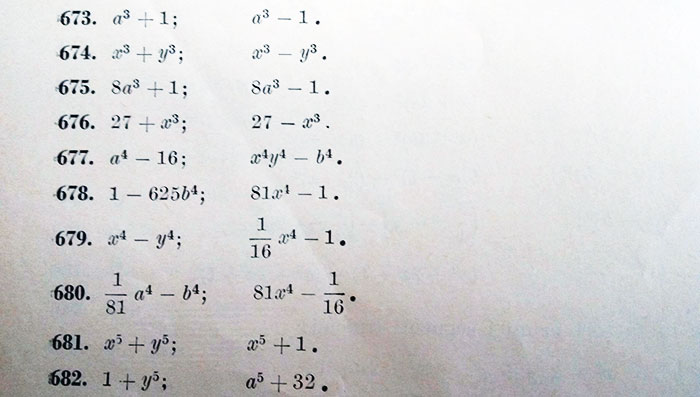 673. a³ + 1; a³ − 1.
674. x³ + y³; x³ − y³.
675. 8a³ + 1; 8a³ − 1.
676. 27 + x³; 27 − x³.
677. a⁴ − 16; x⁴y⁴ − b⁴.
678. 1 − 625b⁴; 81x⁴ − 1.
679. x⁴ − y⁴; 1/16 x⁴ − 1.
680. 1/81 a⁴ − b⁴; 81x⁴ − 1/16.
681. x⁵ + y⁵; x⁵ + 1.
682. 1 + y⁵; a⁵ + 32.